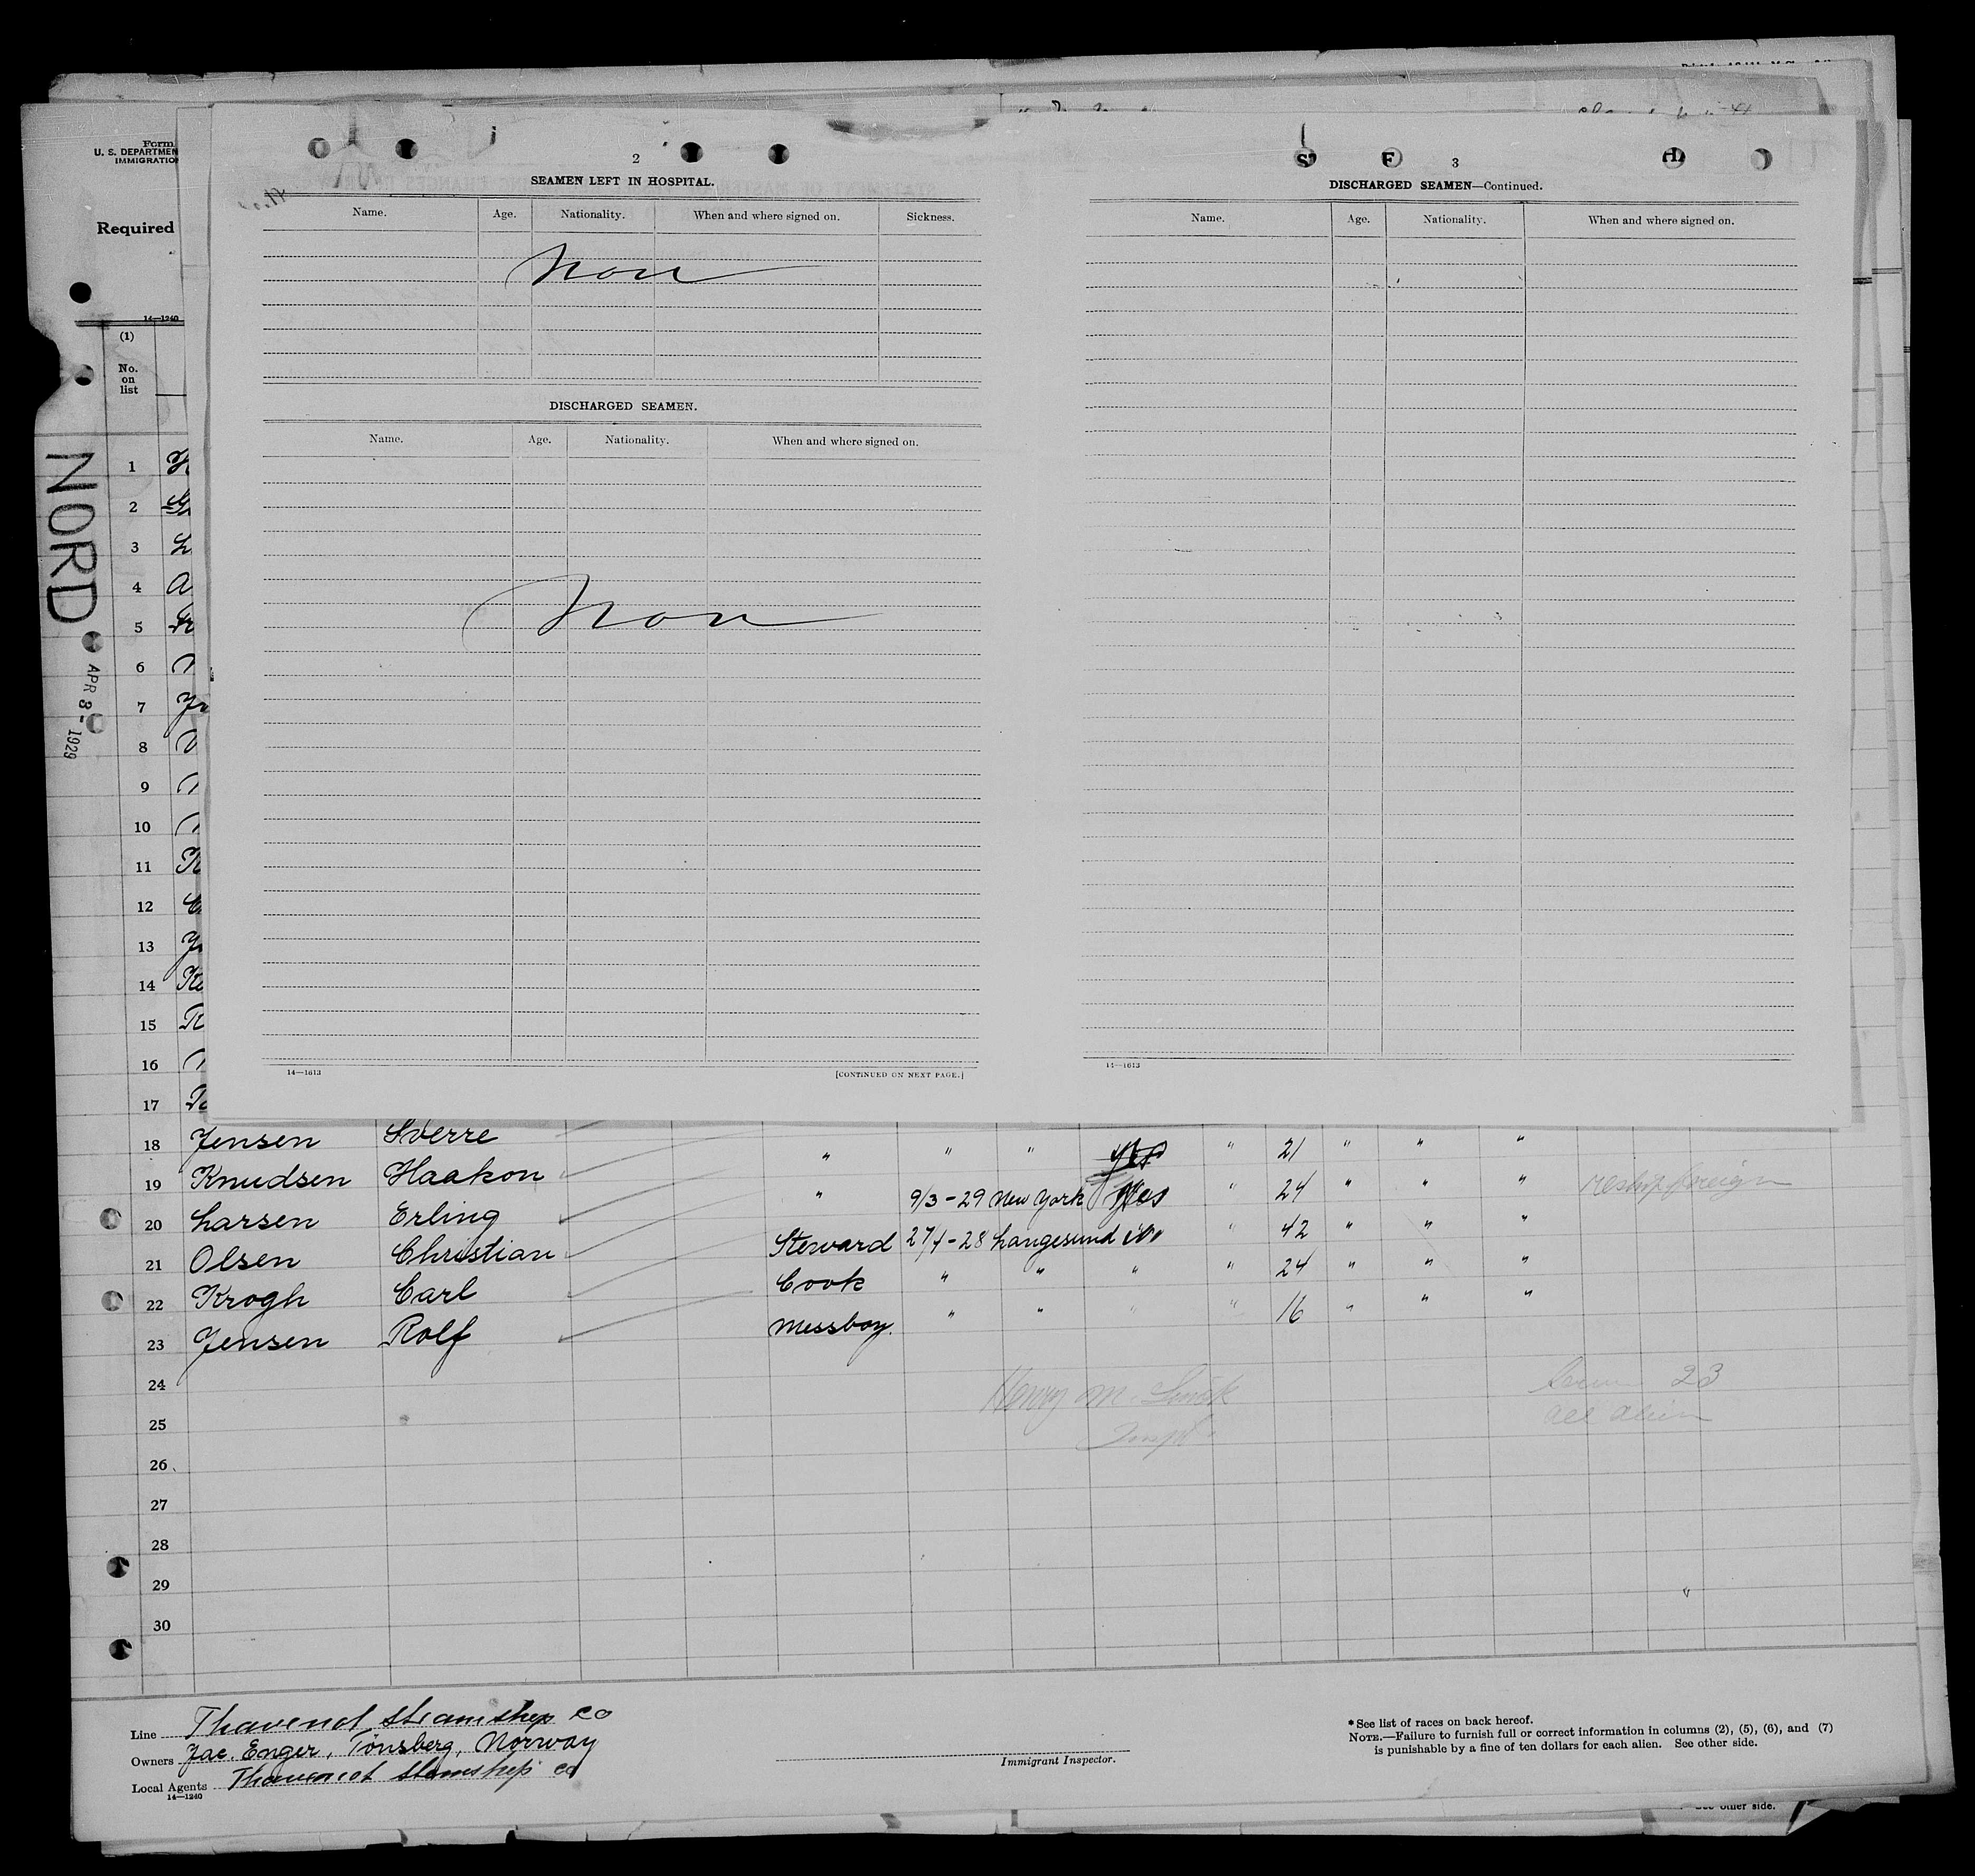 Form
U. S. DEPARTMEN
IMMIGRATIO
Required
14—1240
(1)
No.
on
list
NORD
APR 8 - 1929
2
SEAMEN LEFT IN HOSPITAL.
Name. Age. Nationality. When and where signed on. Sickness.
Non
DISCHARGED SEAMEN.
Name. Age. Nationality. When and where signed on.
Non
14—1613 [CONTINUED ON NEXT PAGE.]
3
DISCHARGED SEAMEN—Continued.
Name. Age. Nationality. When and where signed on.
14—1613
1
2
3
4
5
6
7
8
9
10
11
12
13
14
15
16
17
18 Jensen Sverre " " " Yes " 21 " " "
19 Knudsen Haakon " 9/3-29 New York Yes " 24 " " " reship foreign
20 Larsen Erling Steward 27/4-28 Langesund " 42 " " "
21 Olsen Christian Cook " " " " 24 " " "
22 Krogh Carl Messboy. " " " " 16 " " "
23 Jensen Rolf
24 Henry M. 23
25 all alien
26
27
28
29 "
30
Line Thavenot Steamship Co
Owners Jac. Enger, Tönsberg, Norway
Local Agents Thavenot Steamship Co
14—1240
Immigrant Inspector.
* See list of races on back hereof.
NOTE.—Failure to furnish full or correct information in columns (2), (5), (6), and (7)
is punishable by a fine of ten dollars for each alien. See other side.
See other side.